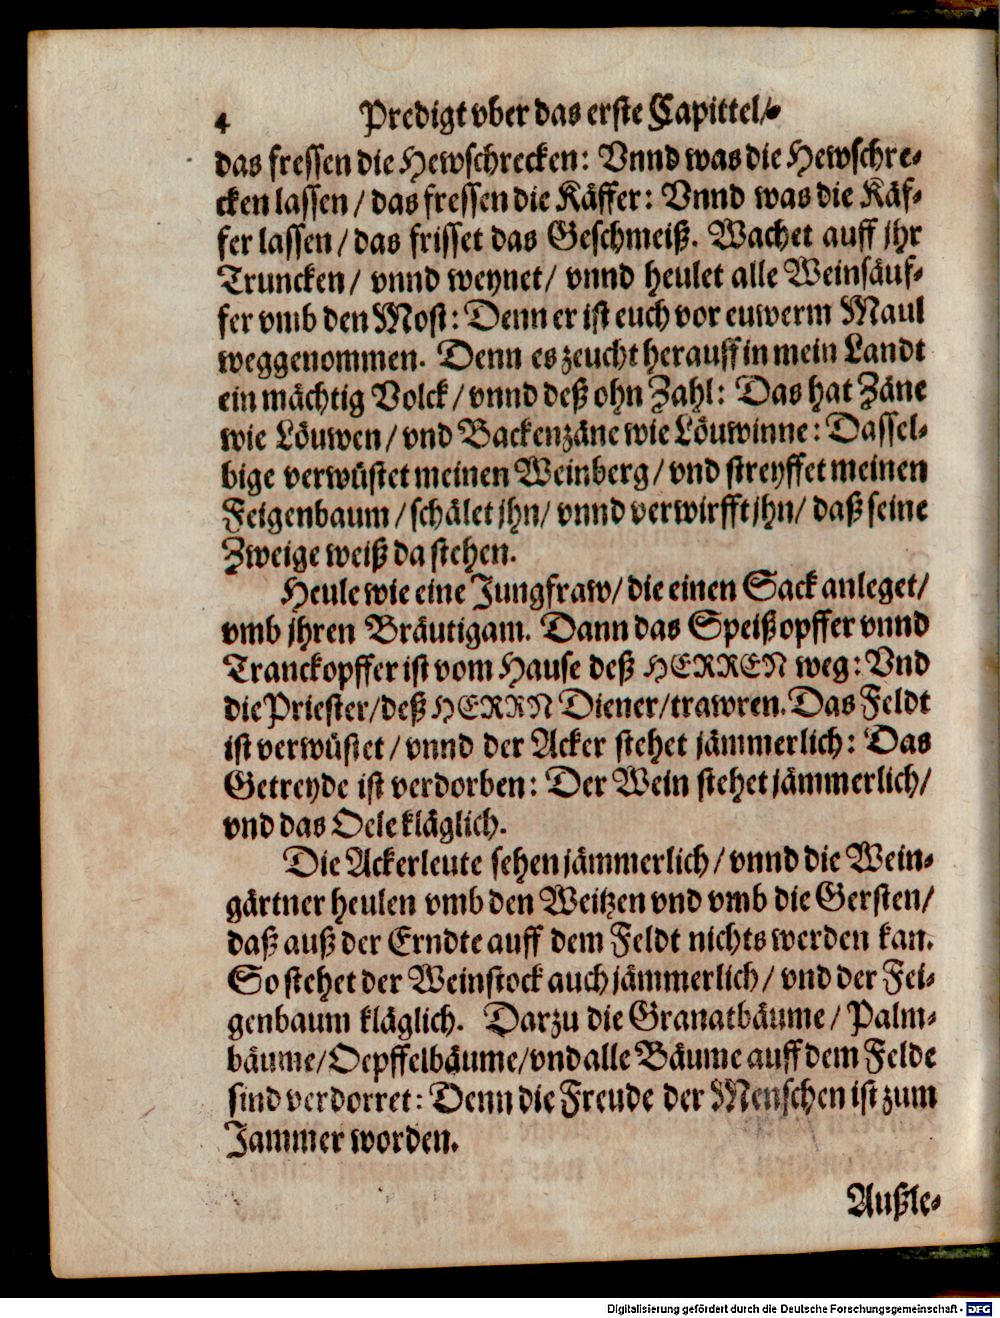 4 Predigt vber das erste Capittel/
das fressen die Hewschrecken: Vnnd was die Hewschre-
cken lassen / das fressen die Käffer: Vnnd was die Käf-
fer lassen / das frisset das Geschmeiß. Wachet auff jhr
Truncken / vnnd weynet / vnnd heulet alle Weinsäuf-
fer vmb den Most: Denn er ist euch vor euwerm Maul
weggenommen. Denn es zeucht herauff in mein Landt
ein mächtig Volck / vnnd deß ohn Zahl: Das hat Zäne
wie Löuwen / vnd Backenzäne wie Löuwinne: Dassel-
bige verwüstet meinen Weinberg / vnd streyffet meinen
Feigenbaum / schälet jhn / vnnd verwirfft jhn / daß seine
Zweige weiß da stehen.
Heule wie eine Jungfraw / die einen Sack anleget /
vmb jhren Bräutigam. Dann das Speißopffer vnnd
Tranckopffer ist vom Hause deß HERREN weg: Vnd
die Priester / deß HERRN Diener / trawren. Das Feldt
ist verwüstet / vnnd der Acker stehet jämmerlich: Das
Getreyde ist verdorben: Der Wein stehet jämmerlich /
vnd das Oele kläglich.
Die Ackerleute sehen jämmerlich / vnnd die Wein-
gärtner heulen vmb den Weitzen vnd vmb die Gersten /
daß auß der Erndte auff dem Feldt nichts werden kan.
So stehet der Weinstock auch jämmerlich / vnd der Fei-
genbaum kläglich. Darzu die Granatbäume / Palm-
bäume / Oepffelbäume / vnd alle Bäume auff dem Felde
sind verdorret: Denn die Freude der Menschen ist zum
Jammer worden.
Außle-
Digitalisierung gefördert durch die Deutsche Forschungsgemeinschaft - DFG